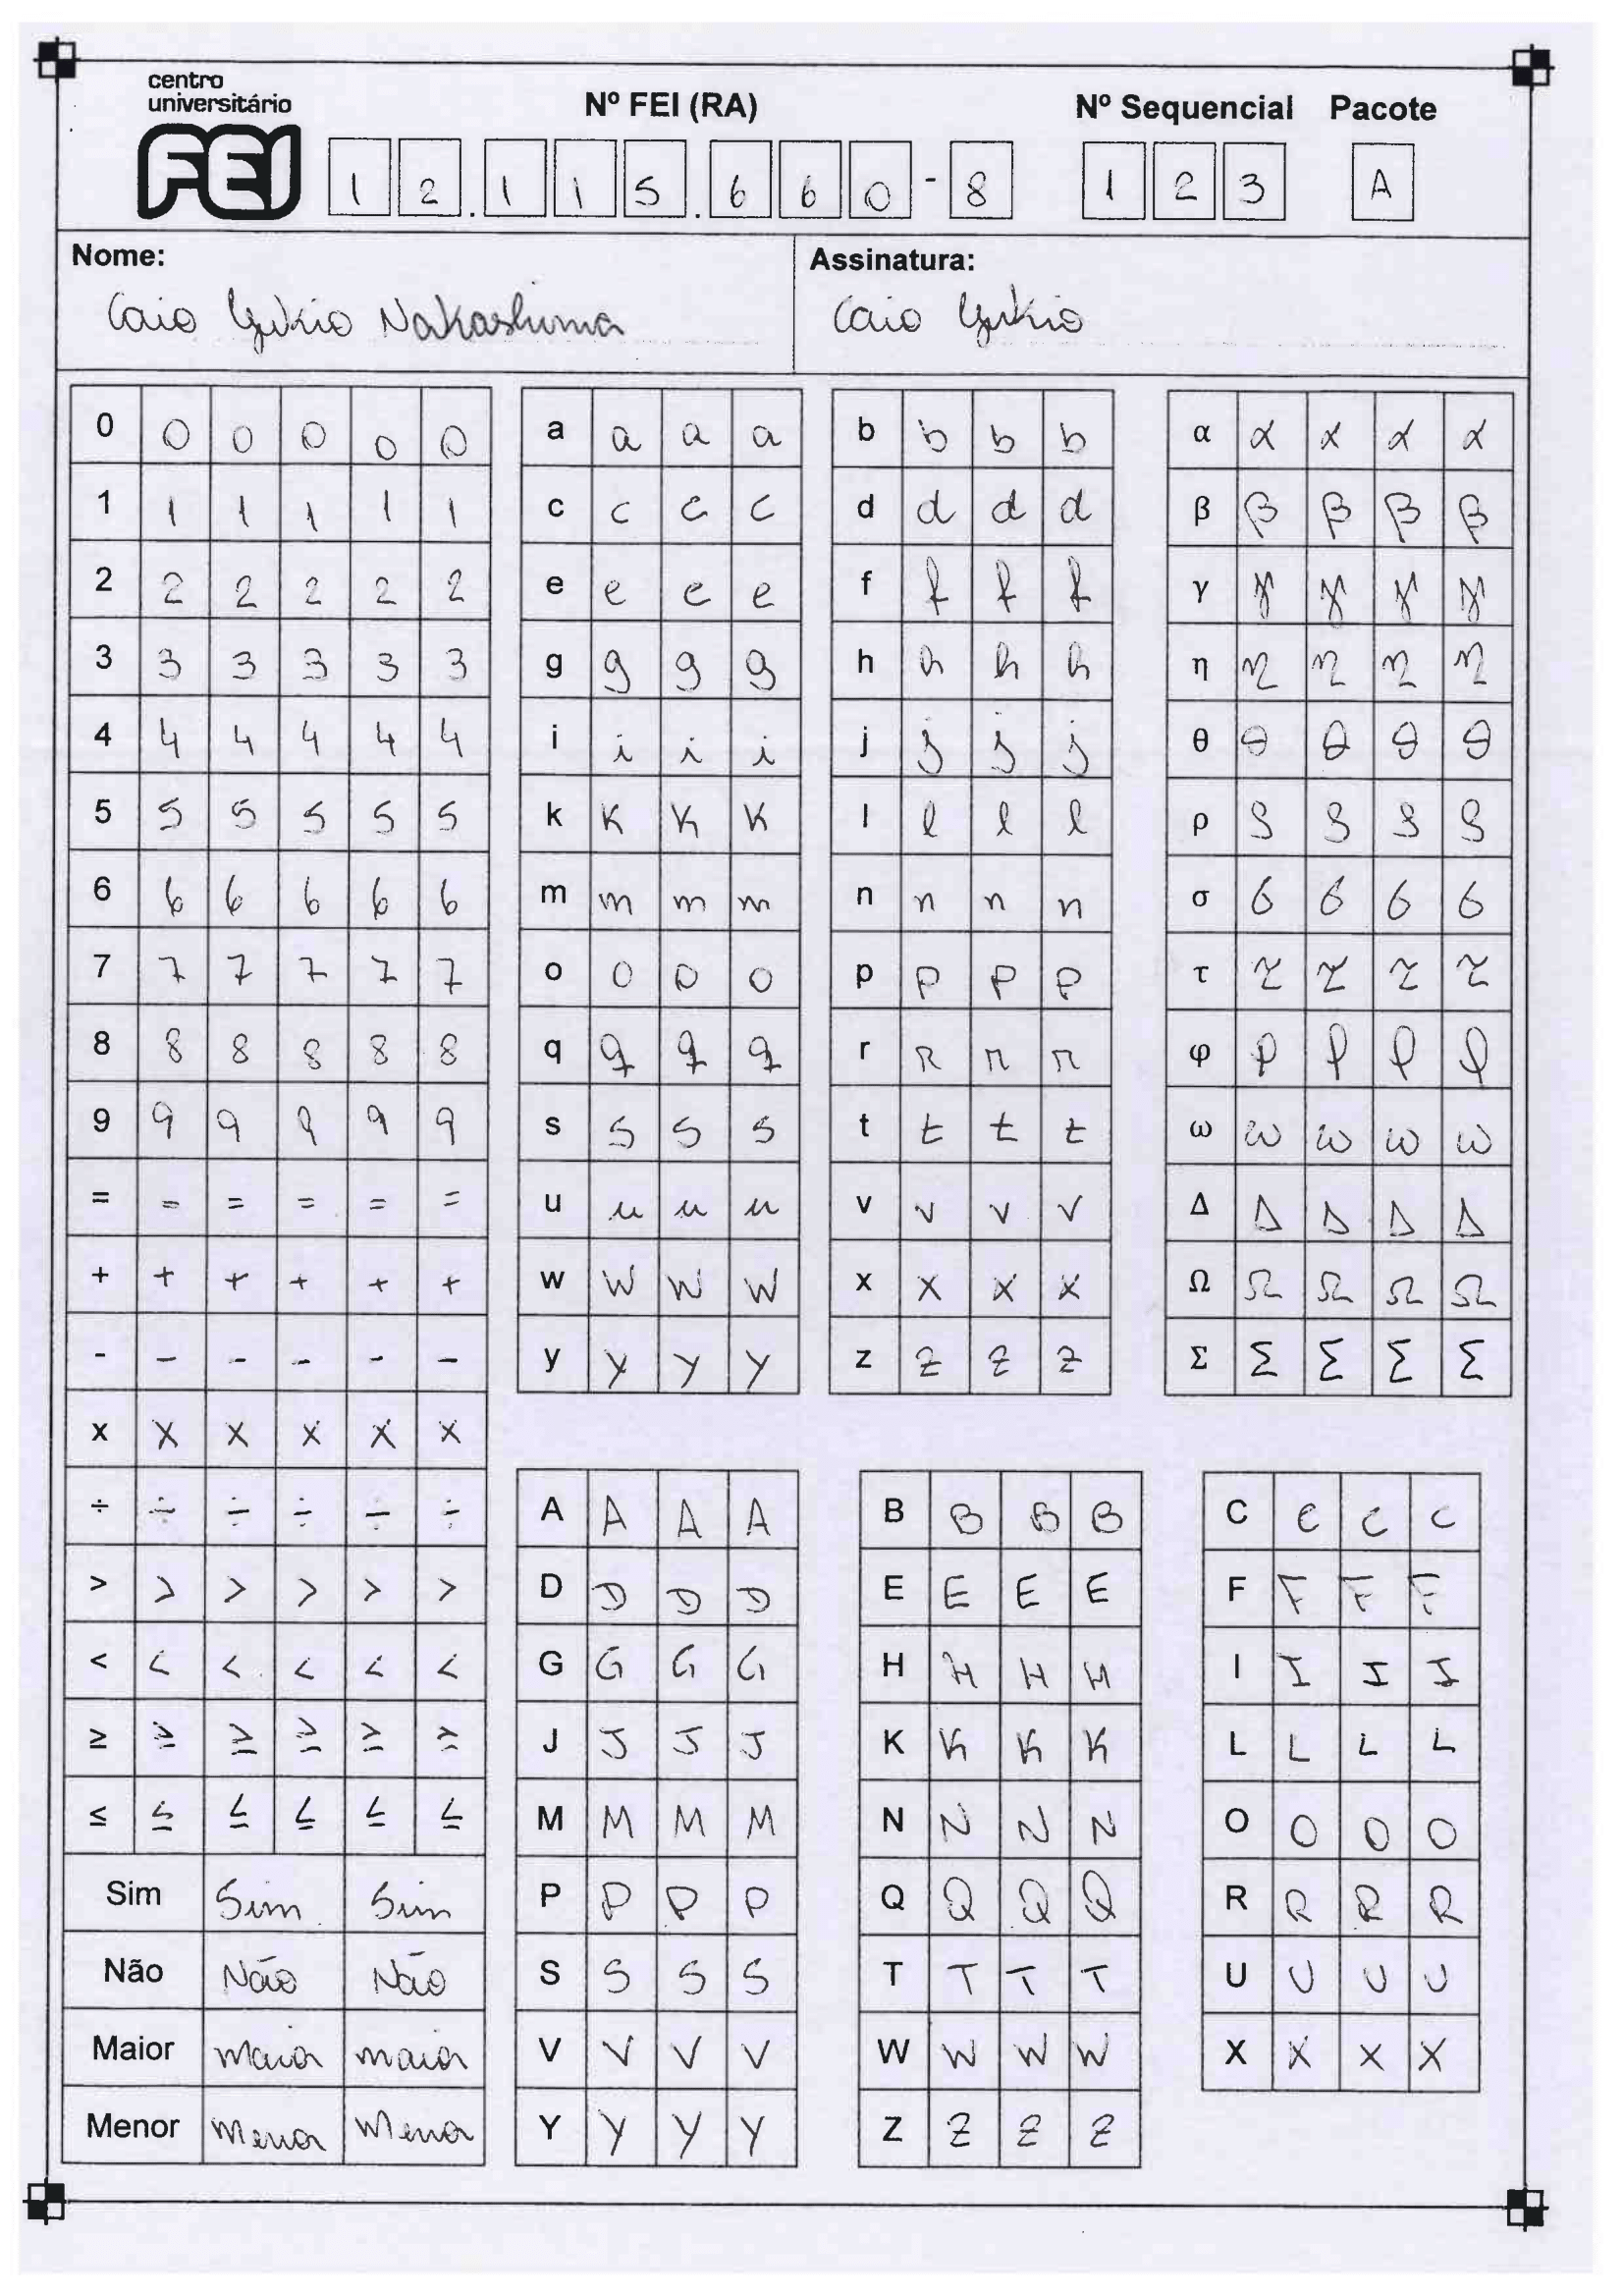 centro
universitário
FEI
Nº FEI (RA)
Nº Sequencial Pacote
1 2 . 1 1 5 . 6 6 0 - 8
1 2 3
A
Nome:
Caio Yukio Nakashima
Assinatura:
Caio Yukio
0 0 0 0 0 0
1 1 1 1 1 1
2 2 2 2 2 2
3 3 3 3 3 3
4 4 4 4 4 4
5 5 5 5 5 5
6 6 6 6 6 6
7 7 7 7 7 7
8 8 8 8 8 8
9 9 9 9 9 9
= = = = = =
+ + + + + +
- - - - - -
x x x x x x
÷ ÷ ÷ ÷ ÷ ÷
> > > > > >
< < < < < <
≥ ≥ ≥ ≥ ≥ ≥
≤ ≤ ≤ ≤ ≤ ≤
Sim Sim Sim
Não Não Não
Maior maior maior
Menor Menor Menor
a a a a
c c c c
e e e e
g g g g
i i i i
k k k k
m m m m
o o o o
q q q q
s s s s
u u u u
w w w w
y y y y
b b b b
d d d d
f f f f
h h h h
j j j j
l l l l
n n n n
p p p p
r r r r
t t t t
v v v v
x x x x
z z z z
α α α α α
β β β β β
γ γ γ γ γ
η η η η η
θ θ θ θ θ
ρ ρ ρ ρ ρ
σ σ σ σ σ
τ τ τ τ τ
φ φ φ φ φ
ω ω ω ω ω
Δ Δ Δ Δ Δ
Ω Ω Ω Ω Ω
Σ Σ Σ Σ Σ
A A A A
D D D D
G G G G
J J J J
M M M M
P P P P
S S S S
V V V V
Y Y Y Y
B B B B
E E E E
H H H H
K K K K
N N N N
Q Q Q Q
T T T T
W W W W
Z Z Z Z
C C C C
F F F F
I I I I
L L L L
O O O O
R R R R
U U U U
X X X X